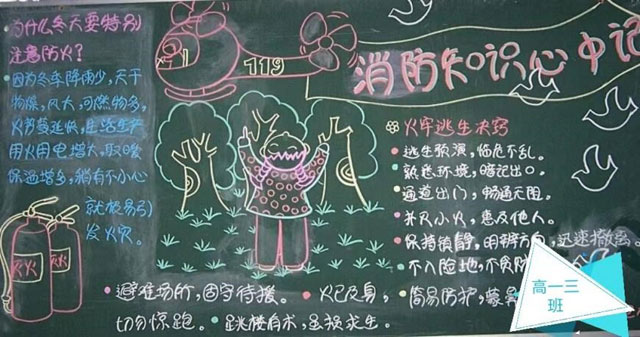 为什么冬天要特别
注意防火?
因为冬季降雨少,天干
物燥,风大,可燃物多,
火势蔓延快,生活生产
用火用电增大,取暖
保温增多,稍有不小心
就极易引
发火灾。
灭火
灭火
119
消防知识心中记
火灾逃生决窍
逃生预演,临危不乱。
熟悉环境,暗记出口。
通道出口,畅通无阻。
扑灭小火,惠及他人。
保持镇静,明辨方向,迅速撤离
不入险地,不贪财
避难场所,固守待援。
火已及身,
简易防护,蒙鼻
切勿惊跑。
跳楼有术,虽损求生。
高一三
班